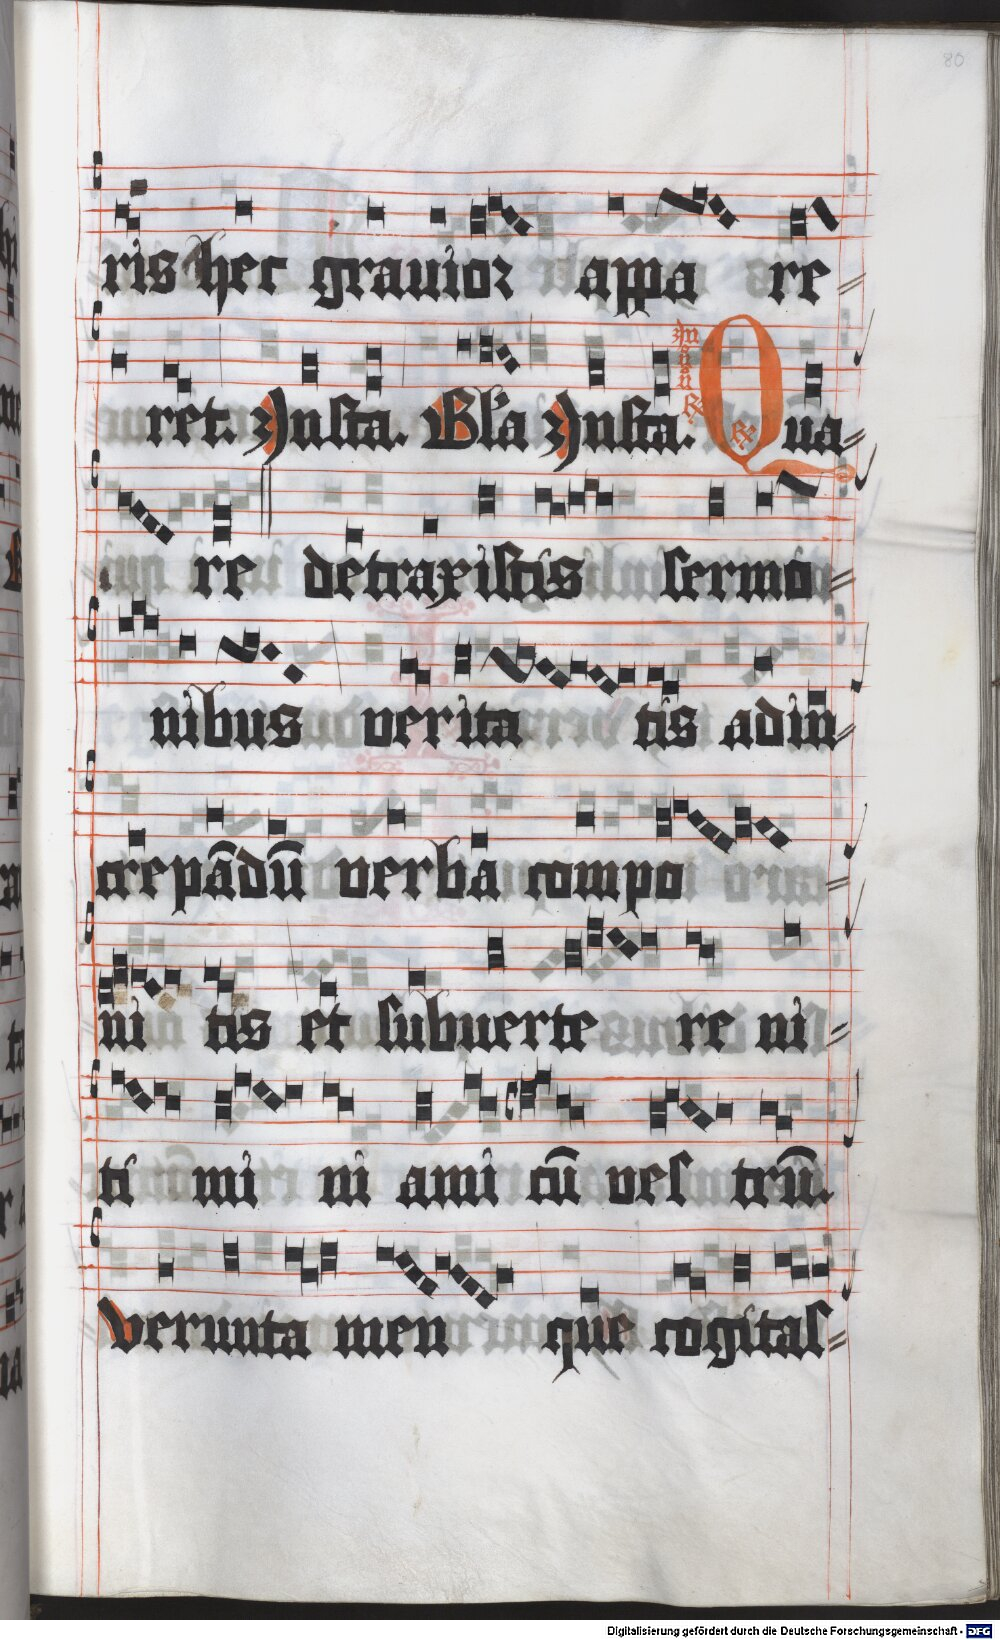 80
ris hec grauior appa re
ret. Insta. Gl'a Insta. Qua
re detraxistis sermo
nibus verita tis adin
crepādū verba compo
ni tis et subuerte re ni
ti mi ni ami cū ves trū.
Verunta men que cogitas
Digitalisierung gefördert durch die Deutsche Forschungsgemeinschaft - DFG